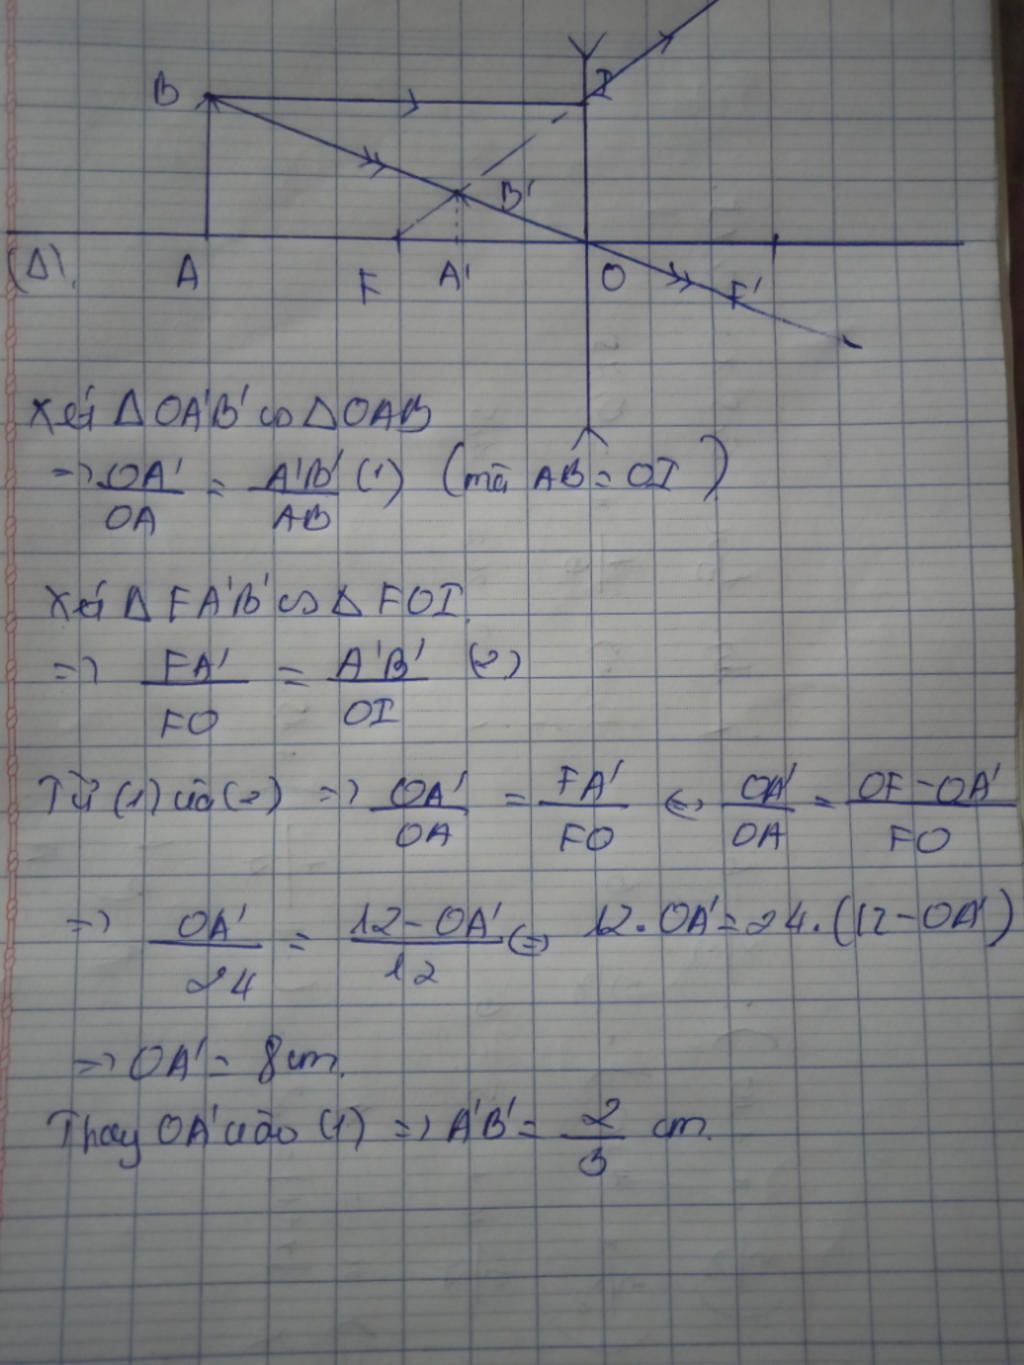 B I
B'
(Δ) A F A' O F'
Xét Δ OA'B' ∽ ΔOAB
=> OA'/OA = A'B'/AB (1) (mà AB = OI)
Xét Δ FA'B' ∽ Δ FOI
=> FA'/FO = A'B'/OI (2)
Từ (1) và (2) => OA'/OA = FA'/FO <=> OA'/OA = OF-OA'/FO
=> OA'/24 = 12-OA'/12 <=> 12.OA' = 24.(12-OA')
=> OA' = 8cm.
Thay OA' vào (1) => A'B' = 2/3 cm.